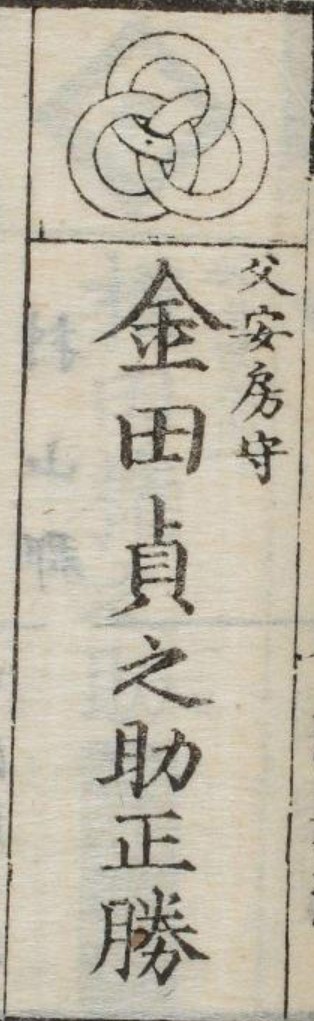 父安房守
金田貞之助正勝